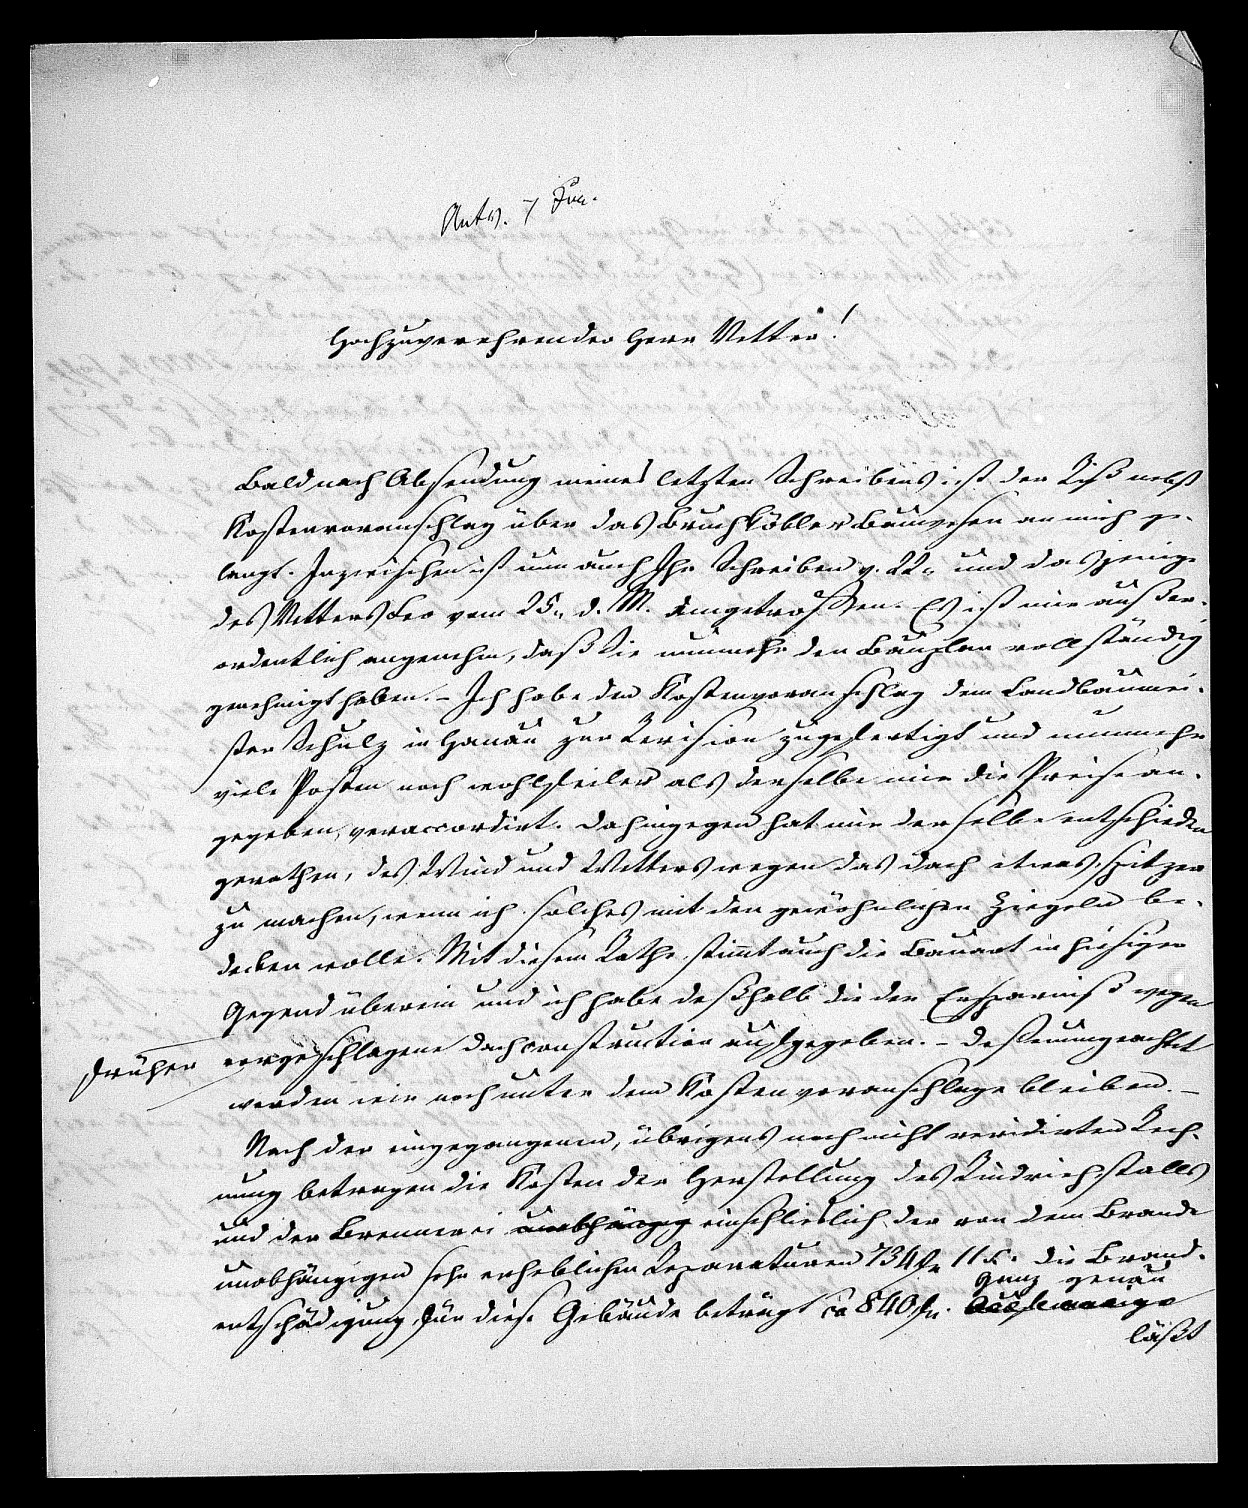 Antw. 7 Jun.
Hochzuverehrender Herr Vetter!
Bald nach Absendung meines letzten Schreibens ist der Riß nebst
Kostenvoranschlag über das Bruchköbler Bauwesen an mich ge-
langt. Inzwischen ist nun auch Ihr Schreiben v. 22n und dasjenige
des Vetters Leo vom 25n d. M. eingetroffen. Es ist mir außer-
ordentlich angenehm, daß Sie nunmehr den Bauplan vollständig
genehmigt haben. – Ich habe den Kostenvoranschlag dem Landbaumei-
ster Schulz in Hanau zur Revision zugefertigt und nunmehr
viele Posten noch wohlfeiler als derselbe mir die Preise an-
gegeben, veraccordirt. Dahingegen hat mir derselbe entschieden
gerathen, des Wind und Wetters wegen das Dach etwas spitzer
zu machen, wenn ich solches mit den gewöhnlichen Ziegeln be-
decken wolle. Mit diesem Rathe stimt auch die Bauart in hiesiger
Gegend überein und ich habe deßhalb die der Ersparniß wegen
früher vorgeschlagene Dachconstruction aufgegeben. – Deßenungeachtet
werden wir noch unter dem Kostenvoranschlage bleiben. –
Nach der eingegangenen, übrigens noch nicht revidirten Rech-
nung betragen die Kosten der Herstellung des Rindviehstalls
und der Brennerei unabhängig einschließlich der von dem Brande
unabhängigen sehr erheblichen Reparaturen 734 fn 11 x. die Brand-
ganz genau
entschädigung für diese Gebäude beträgt ca 840 fn.
läßt